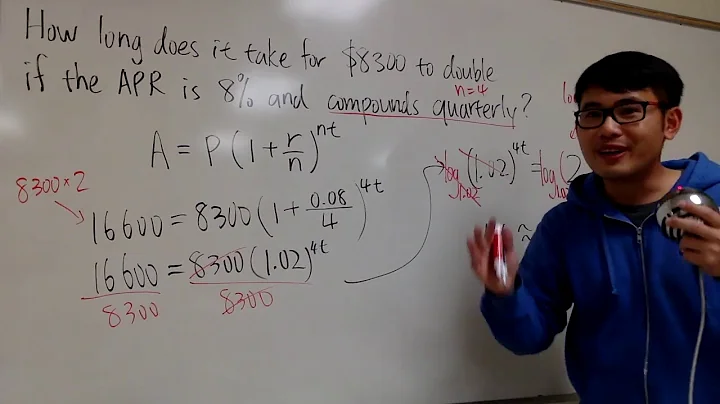 How long does it take for $8300 to double
if the APR is 8% and compounds quarterly?
n=4
A = P(1+r/n)^nt
8300×2
16600 = 8300(1+0.08/4)^4t
16600 = 8300(1.02)^4t
8300 8300
log1.02(1.02)^4t = log1.02(2
≈